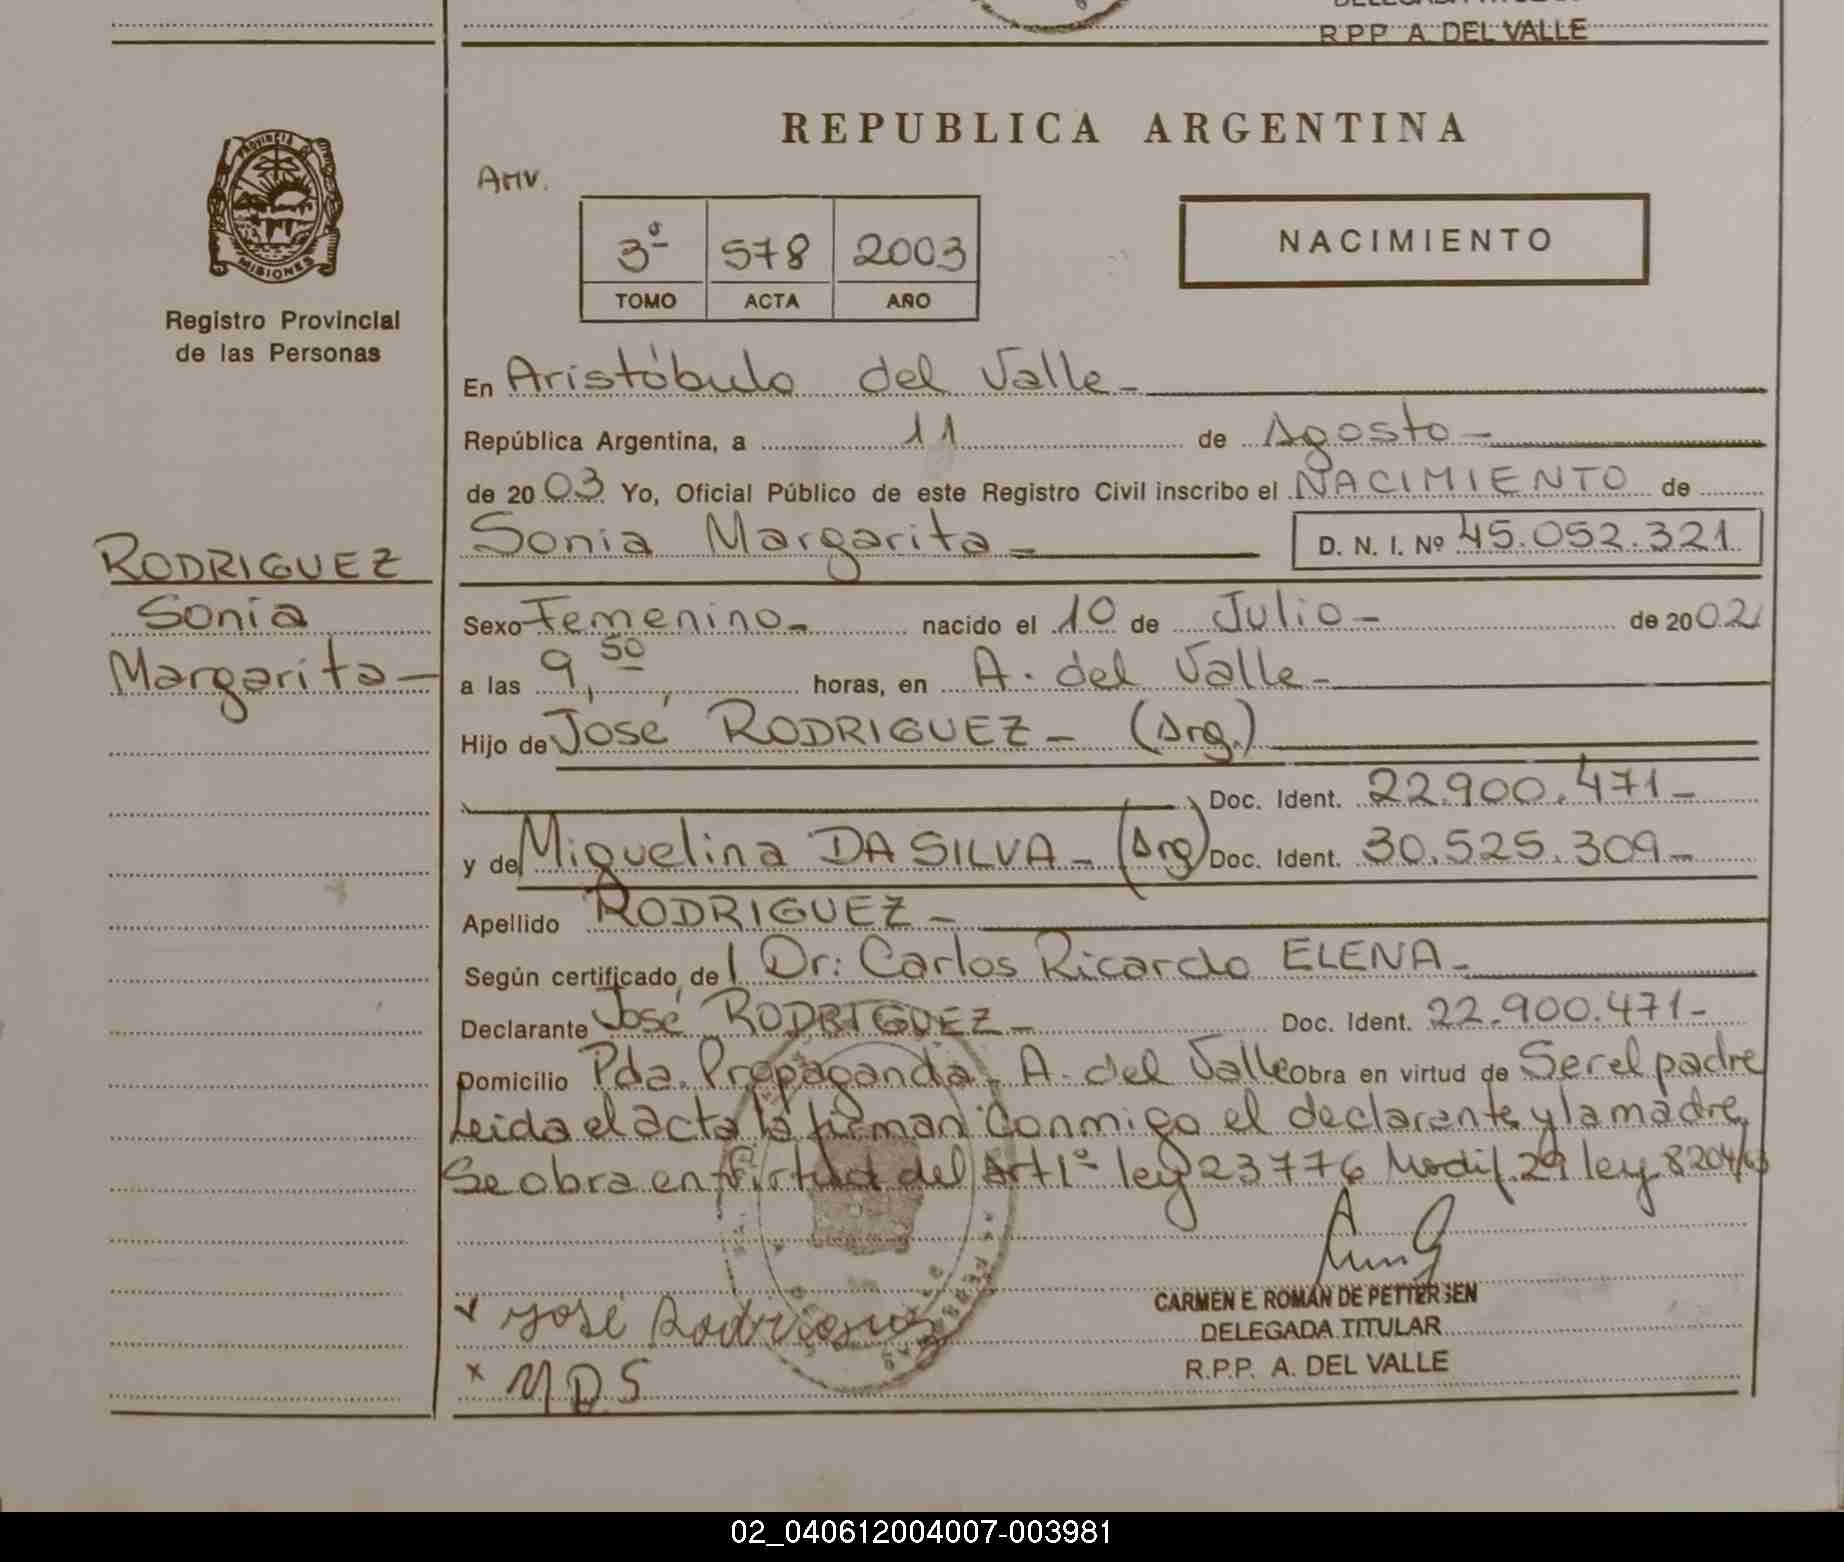 R.P.P. A. DEL VALLE
PROVINCIA DE
MISIONES
Registro Provincial
de las Personas
RODRIGUEZ
Sonia
Margarita-
REPUBLICA ARGENTINA
AMV.
3º 578 2003
TOMO ACTA AÑO
NACIMIENTO
En Aristóbulo del Valle-
República Argentina, a 11 de Agosto-
de 2003 Yo, Oficial Público de este Registro Civil inscribo el NACIMIENTO de
Sonia Margarita- D. N. I. Nº 45.052.321
Sexo Femenino- nacido el 10 de Julio- de 2002
a las 9,50 horas, en A. del Valle-
Hijo de José RODRIGUEZ- (Arg.)
Doc. Ident. 22.900.471-
y de Miguelina DA SILVA- (Arg) Doc. Ident. 30.525.309-
Apellido RODRIGUEZ-
Según certificado de Dr: Carlos Ricardo ELENA-
Declarante José RODRIGUEZ- Doc. Ident. 22.900.471-
Domicilio Pda. Propaganda- A. del Valle obra en virtud de Ser el padre
Leida el acta la firman conmigo el declarante y la madre,
Se obra en virtud del Art 1º ley 23776 Modif. 29 ley 8204/63
José Rodriguez
x M D S
CARMEN E. ROMAN DE PETTERSEN
DELEGADA TITULAR
R.P.P. A. DEL VALLE
02_040612004007-003981